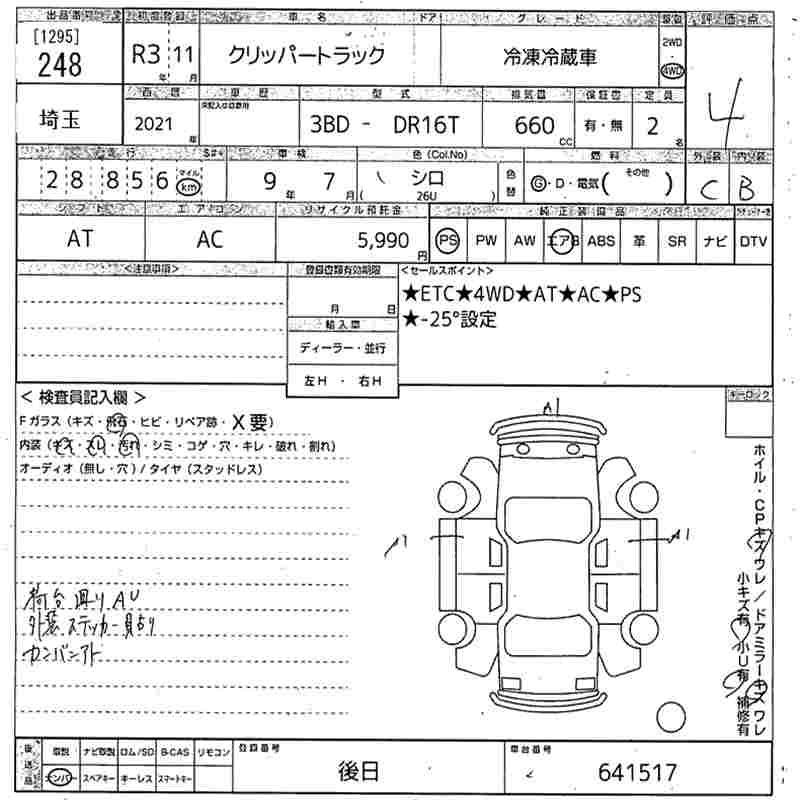 出品番号 初度登録 車名 ドア グレード 駆動 評価点
[1295]
248
R3年 11月
クリッパートラック
冷凍冷蔵車
2WD
4WD
4
埼玉
西暦 車歴 型式 排気量 保証書 定員
2021年
3BD - DR16T
660 CC
有・無
2名
走行 車検 色(Col.No) 燃料 外装 内装
28856 マイル km
9年 7月
シロ
( 26U )
色替
G・D・電気( その他 )
C B
シフト エアコン リサイクル預託金 純正装備品
AT AC 5,990円
PS PW AW エアB ABS 革 SR ナビ DTV
<注意事項>
登録書類有効期限
月 日
輸入車
ディーラー・並行
左H ・ 右H
<セールスポイント>
★ETC★4WD★AT★AC★PS
★-25°設定
キーロック
<検査員記入欄>
Fガラス(キズ・飛石・ヒビ・リペア跡・X要)
内装(キズ・スレ・汚れ・シミ・コゲ・穴・キレ・破れ・割れ)
オーディオ(無し・穴)/タイヤ(スタッドレス)
荷台 回り AU
外装 ステッカー貼り
カンバンアト
A1
A1
A1
ホイル・CPキズウレ/ドアミラーキズワレ
小キズ有 小U有 補修有
後送品
取説 ナビ取説 ロム/SD B-CAS リモコン
ナンバー スペアキー キーレス スマートキー
登録番号
後日
車台番号
641517